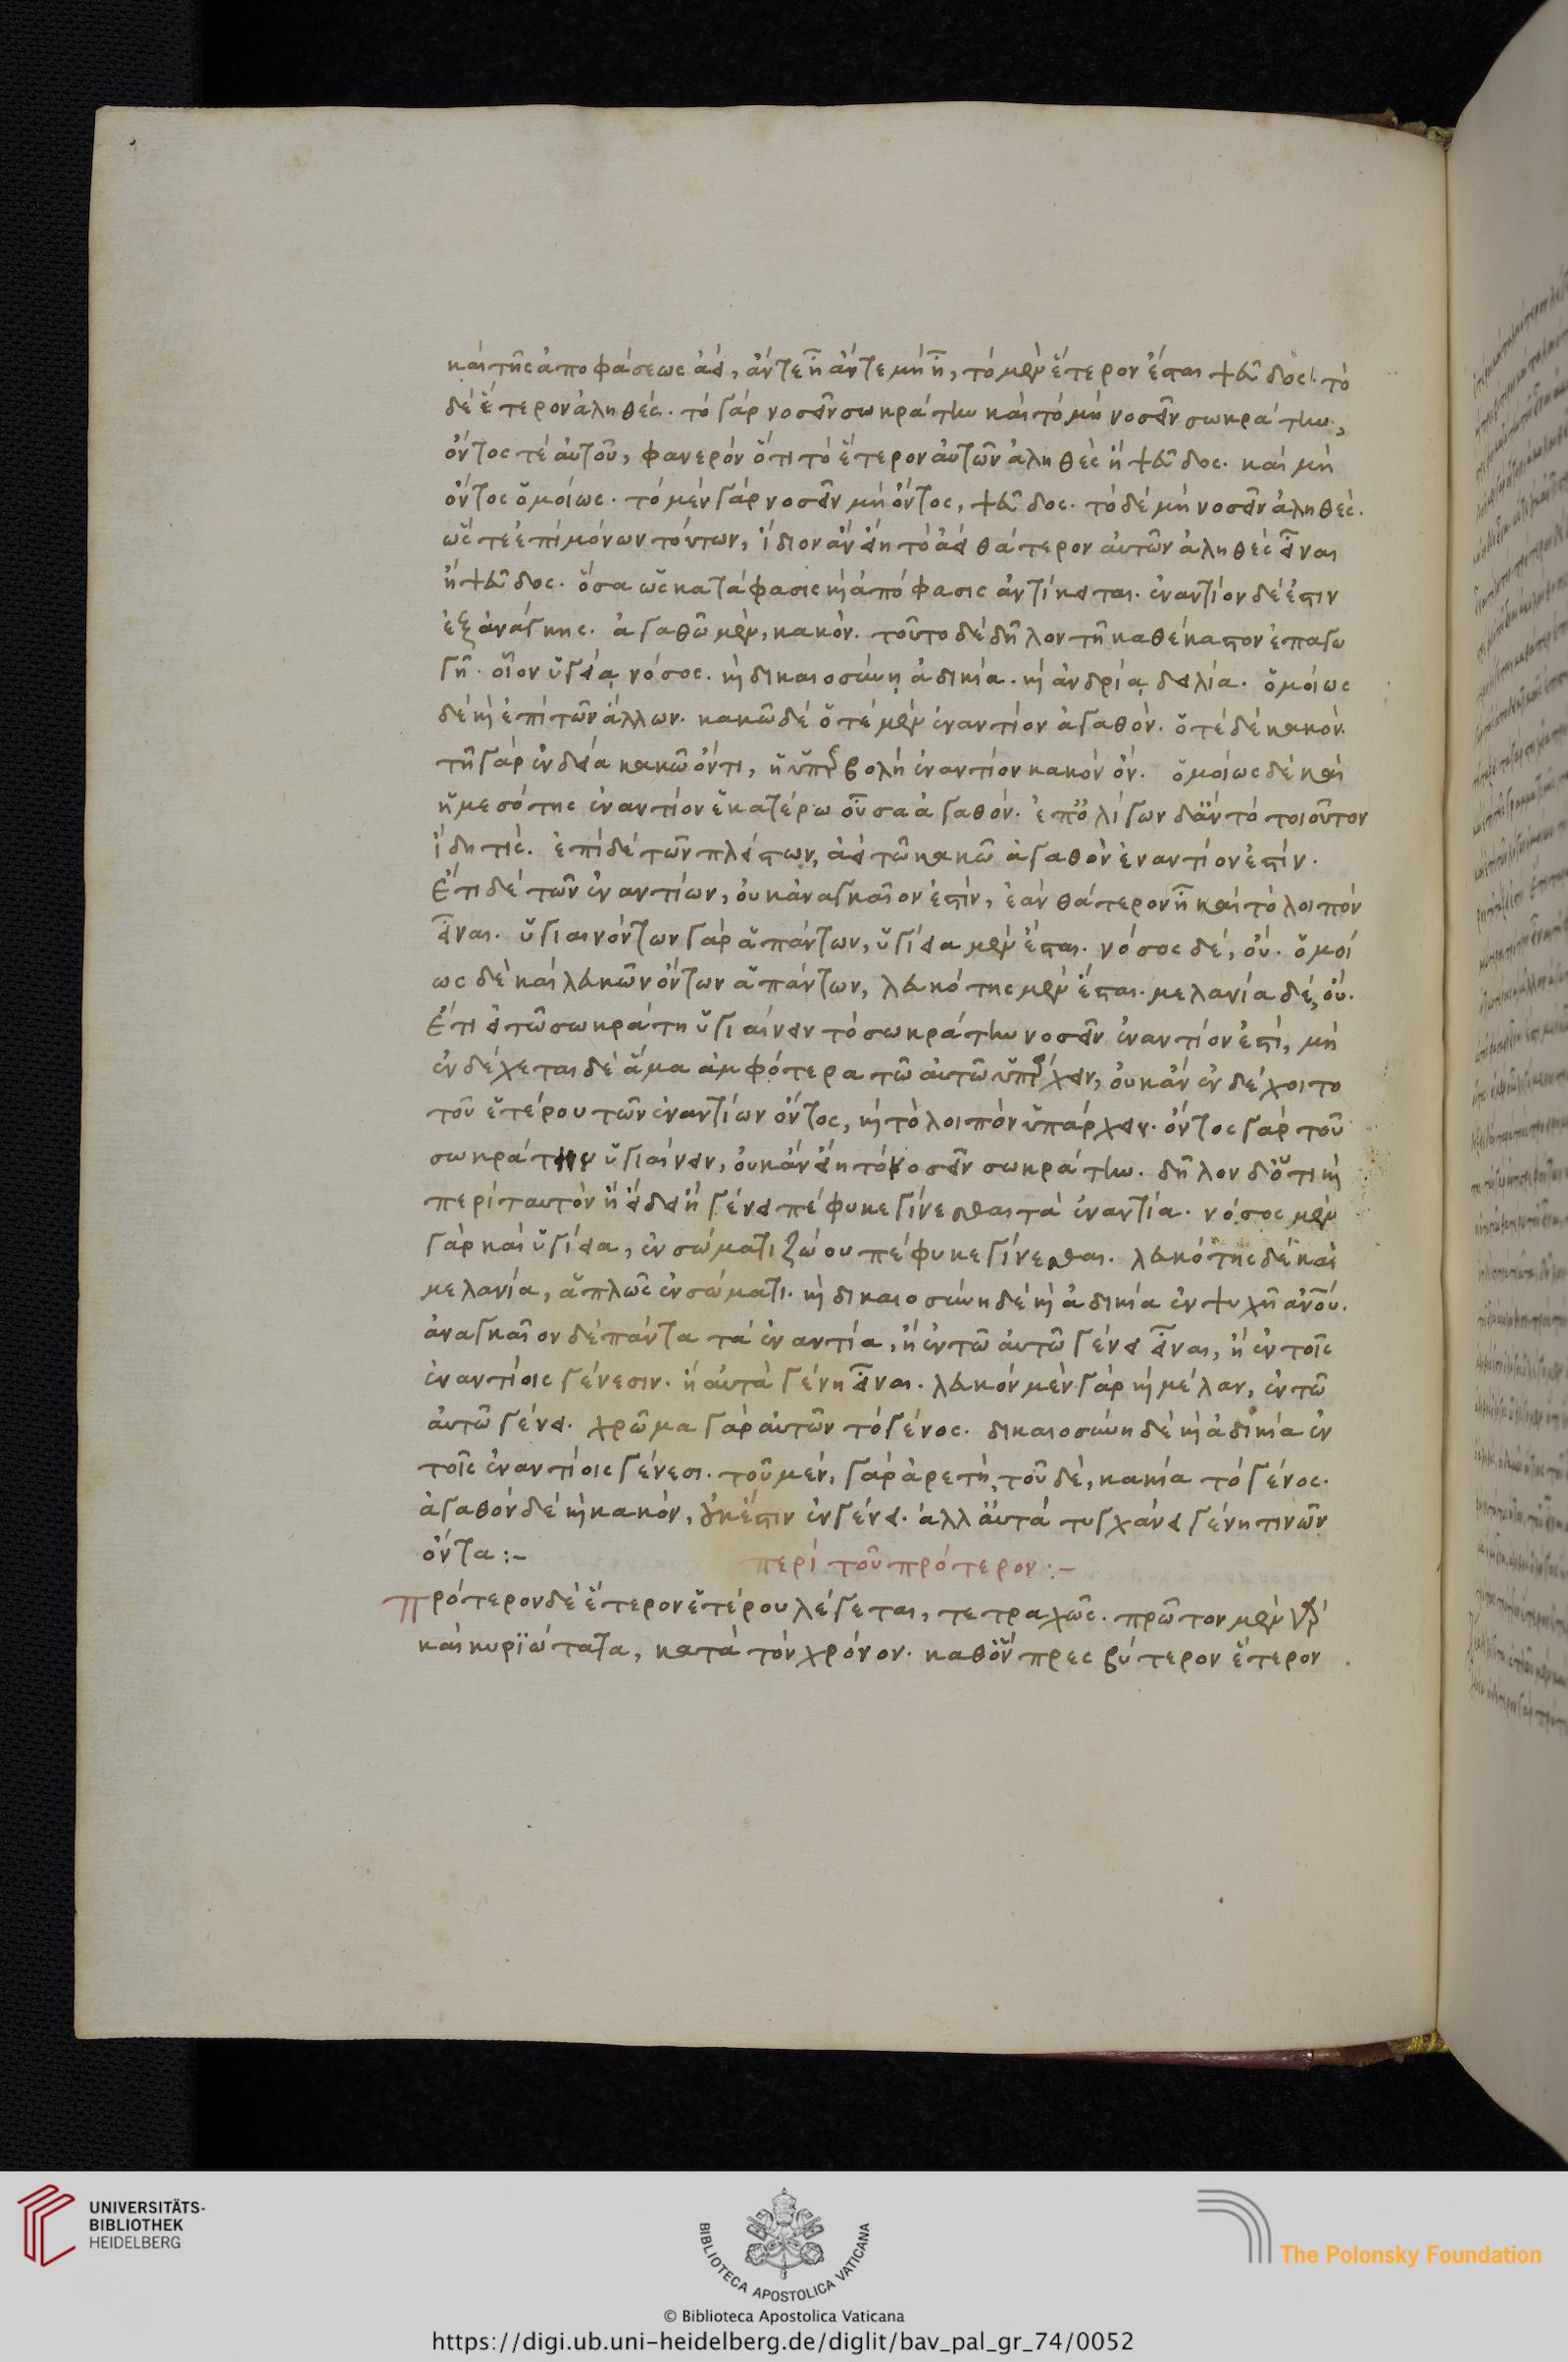 καὶ τῆς ἀποφάσεως ἀεί, ἄν τε ἦ ἄν τε μὴ ἦ, τὸ μὲν ἕτερον ἔσται ψεῦδος· τὸ
δὲ ἕτερον ἀληθές. τὸ γὰρ νοσεῖν σωκράτην καὶ τὸ μὴ νοσεῖν σωκράτην,
ὄντος τὲ αὐτοῦ, φανερὸν ὅτι τὸ ἕτερον αὐτῶν ἀληθὲς ἢ ψεῦδος. καὶ μὴ
ὄντος ὁμοίως. τὸ μὲν γὰρ νοσεῖν μὴ ὄντος, ψεῦδος. τὸ δὲ μὴ νοσεῖν ἀληθές.
ὥς τε ἐπὶ μόνων τούτων, ἴδιον ἂν εἴη τὸ ἀεὶ θάτερον αὐτῶν ἀληθὲς εἶναι
ἢ ψεῦδος. ὅσα ὡς κατάφασις καὶ ἀπόφασις ἀντίκειται. ἐναντίον δέ ἐστιν
ἐξ ἀνάγκης. ἀγαθῶ μὲν, κακόν. τοῦτο δὲ δῆλον τῆ καθέκαστον ἐπαγω
γῆ. οἷον ὑγεία νόσος. καὶ δικαιοσύνη ἀδικία. καὶ ἀνδρία δειλία. ὁμοίως
δὲ καὶ ἐπὶ τῶν ἄλλων. κακῶ δὲ ὁτὲ μὲν ἐναντίον ἀγαθόν. ὁτὲ δὲ κακόν.
τῆ γὰρ ἐνδεία κακῶ ὄντι, ἡ ὑπερβολὴ ἐναντίον κακὸν ὄν. ὁμοίως δὲ καὶ
ἡ μεσότης ἐναντίον ἑκατέρω οὖσα ἀγαθόν. ἐπ' ὀλίγων δ' ἂν τὸ τοιοῦτον
ἴδη τίς. ἐπὶ δὲ τῶν πλείστων, ἀεὶ τῶ κακῶ ἀγαθὸν ἐναντίον ἐστίν.
Ἔτι δὲ τῶν ἐναντίων, οὐκ ἀναγκαῖον ἐστὶν, ἐὰν θάτερον ἦ καὶ τὸ λοιπὸν
εἶναι. ὑγιαινόντων γὰρ ἁπάντων, ὑγίεια μὲν ἔσται. νόσος δέ, οὔ. ὁμοί
ως δὲ καὶ λευκῶν ὄντων ἁπάντων, λευκότης μὲν ἔσται. μελανία δέ, οὔ.
Ἔτι εἰ τῶ σωκράτη ὑγιαίνειν τὸ σωκράτην νοσεῖν ἐναντίον ἐστὶ, μὴ
ἐνδέχεται δὲ ἅμα ἀμφότερα τῶ αὐτῶ ὑπάρχειν, οὐκ ἂν ἐνδέχοιτο
τοῦ ἑτέρου τῶν ἐναντίων ὄντος, καὶ τὸ λοιπὸν ὑπάρχειν. ὄντος γὰρ τοῦ
σωκράτην ὑγιαίνειν, οὐκ ἂν εἴη τὸ νοσεῖν σωκράτην. δῆλον δ' ὅτι καὶ
περὶ ταυτὸν ἢ εἴδει ἢ γένει πέφυκε γίνεσθαι τὰ ἐναντία. νόσος μὲν
γὰρ καὶ ὑγίεια, ἐν σώματι ζώου πέφυκε γίνεσθαι. λευκότης δὲ καὶ
μελανία, ἁπλῶς ἐν σώματι. καὶ δικαιοσύνη δὲ καὶ ἀδικία ἐν ψυχῆ ἀνοῦ.
ἀναγκαῖον δὲ πάντα τὰ ἐναντία, ἢ ἐν τῶ αὐτῶ γένει εἶναι, ἢ ἐν τοῖς
ἐναντίοις γένεσιν. ἢ αὐτὰ γένη εἶναι. λευκὸν μὲν γὰρ καὶ μέλαν, ἐν τῶ
αὐτῶ γένει. χρῶμα γὰρ αὐτῶν τὸ γένος. δικαιοσύνη δὲ καὶ ἀδικία ἐν
τοῖς ἐναντίοις γένεσι. τοῦ μέν, γὰρ ἀρετὴ, τοῦ δέ, κακία τὸ γένος.
ἀγαθὸν δὲ καὶ κακόν, οὐκ ἔστιν ἐν γένει. ἀλλ' αὐτὰ τυγχάνει γένη τινῶν
ὄντα :-
περὶ τοῦ πρότερον :-
Πρότερον δὲ ἕτερον ἑτέρου λέγεται, τετραχῶς. πρῶτον μὲν
καὶ κυριώτατα, κατὰ τὸν χρόνον. καθ' ὃν πρεσβύτερον ἕτερον
UNIVERSITÄTS-
BIBLIOTHEK
HEIDELBERG
BIBLIOTECA APOSTOLICA VATICANA
The Polonsky Foundation
© Biblioteca Apostolica Vaticana
https://digi.ub.uni-heidelberg.de/diglit/bav_pal_gr_74/0052